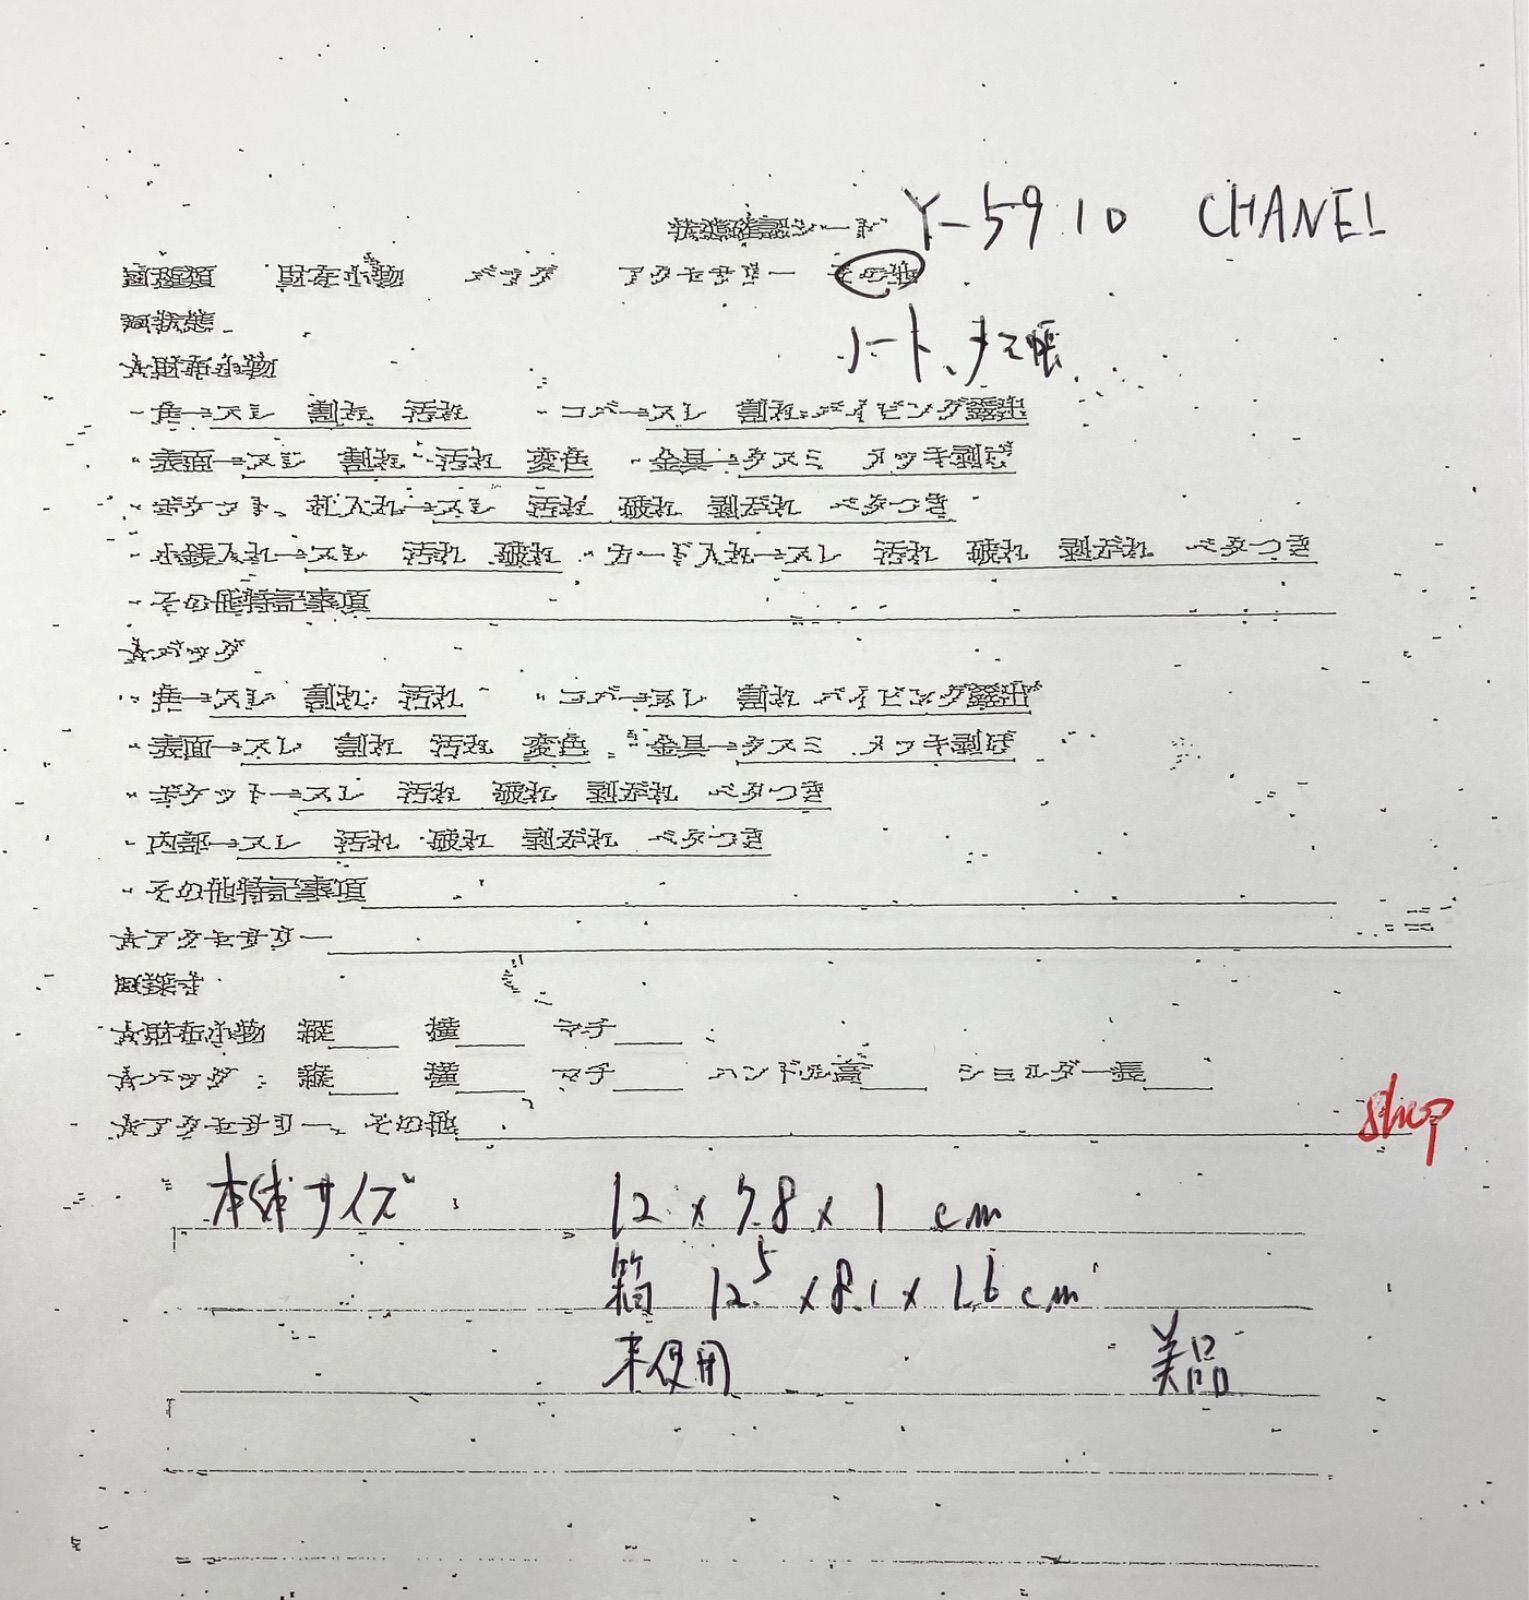 状態確認シート Y-5910 CHANEL
□種類 財布小物 バッグ アクセサリー その他
□状態 ノート、メモ帳
☆財布小物
・角→スレ 割れ 汚れ ・コバ→スレ 割れ パイピング露出
・表面→スレ 割れ 汚れ 変色 ・金具→クスミ メッキ剥げ
・ポケット、札入れ→スレ 汚れ 破れ 型崩れ ベタつき
・小銭入れ→スレ 汚れ 破れ ・カード入れ→スレ 汚れ 破れ 型崩れ ベタつき
・その他特記事項
☆バッグ
・角→スレ 割れ 汚れ ・コバ→スレ 割れ パイピング露出
・表面→スレ 割れ 汚れ 変色 ・金具→クスミ メッキ剥げ
・ポケット→スレ 汚れ 破れ 型崩れ ベタつき
・内部→スレ 汚れ 破れ 型崩れ ベタつき
・その他特記事項
☆アクセサリー
□採寸
☆財布小物 縦 横 マチ
☆バッグ 縦 横 マチ ハンドル高 ショルダー長
☆アクセサリー、その他 shop
本体サイズ 12 x 7.8 x 1 cm
箱 12.5 x 8.1 x 1.6 cm
未使用 美品